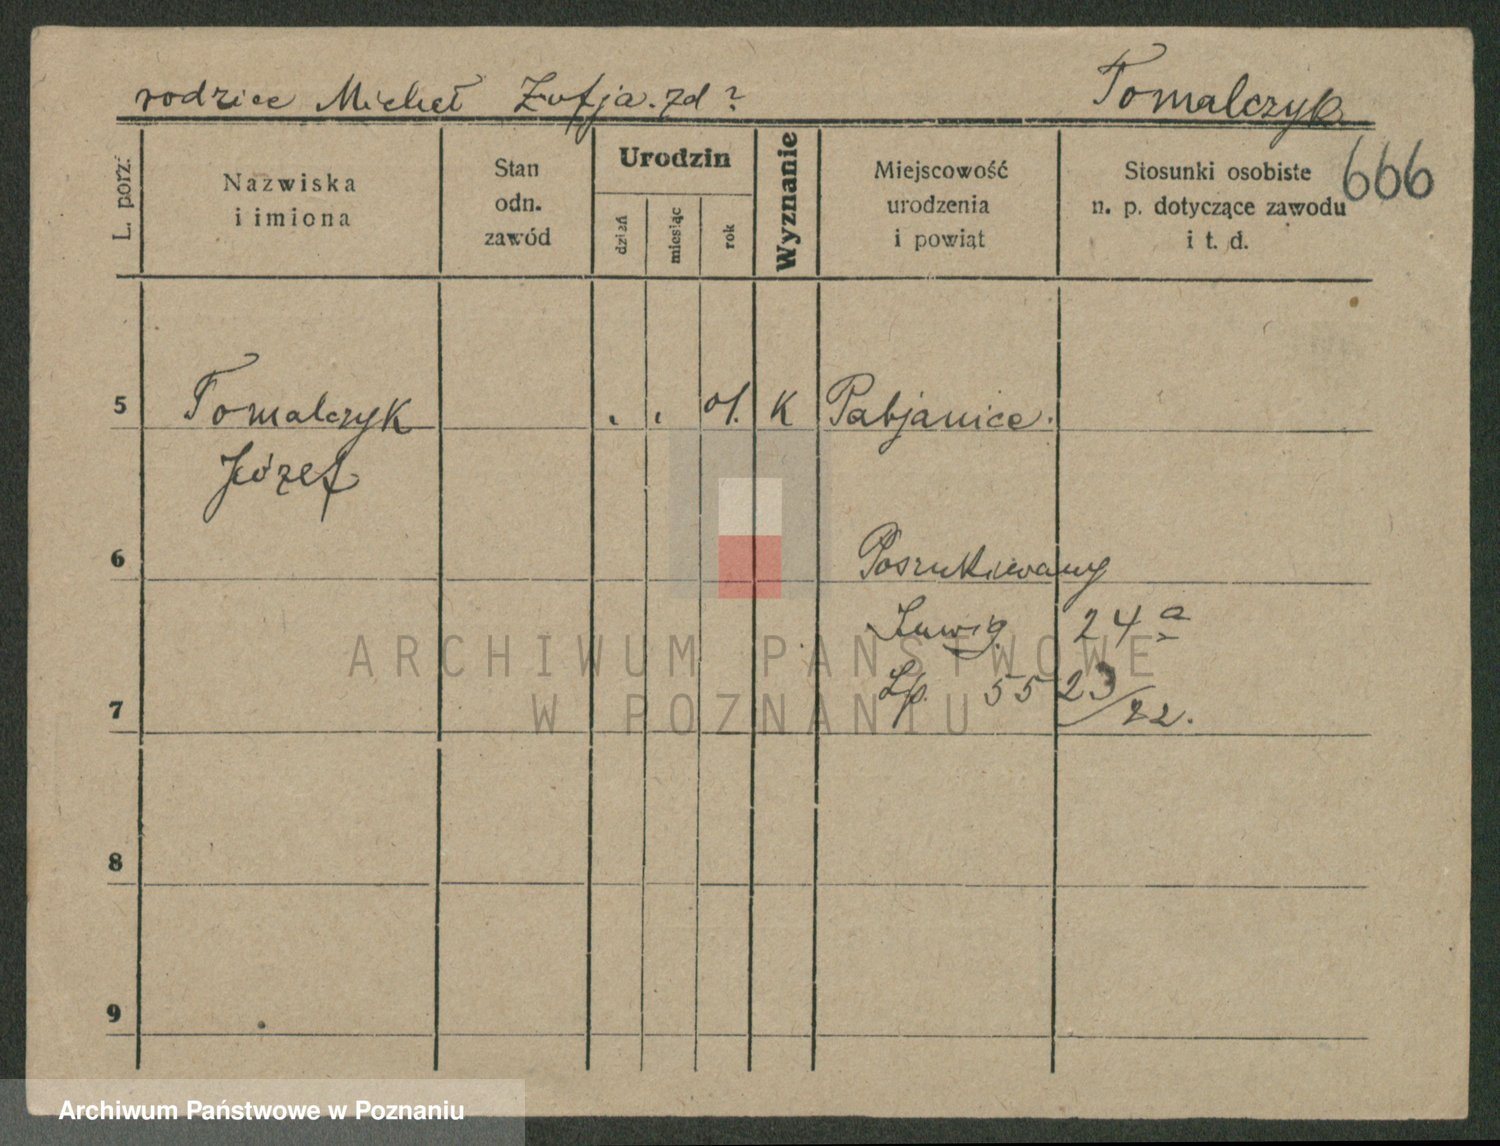 rodzice Michał Zofja. zd ? Tomalczyk
666
L. porz.
Nazwiska
i imiona
Stan
odn.
zawód
Urodzin
dzień
miesiąc
rok
Wyznanie
Miejscowość
urodzenia
i powiat
Stosunki osobiste
n. p. dotyczące zawodu
i t. d.
5 Tomalczyk . . 01. K Pabjanice.
Józef
6 Poszukiwany
24 a
7 Lp. 5523/22.
8
9
ARCHIWUM PAŃSTWOWE
W POZNANIU
Archiwum Państwowe w Poznaniu